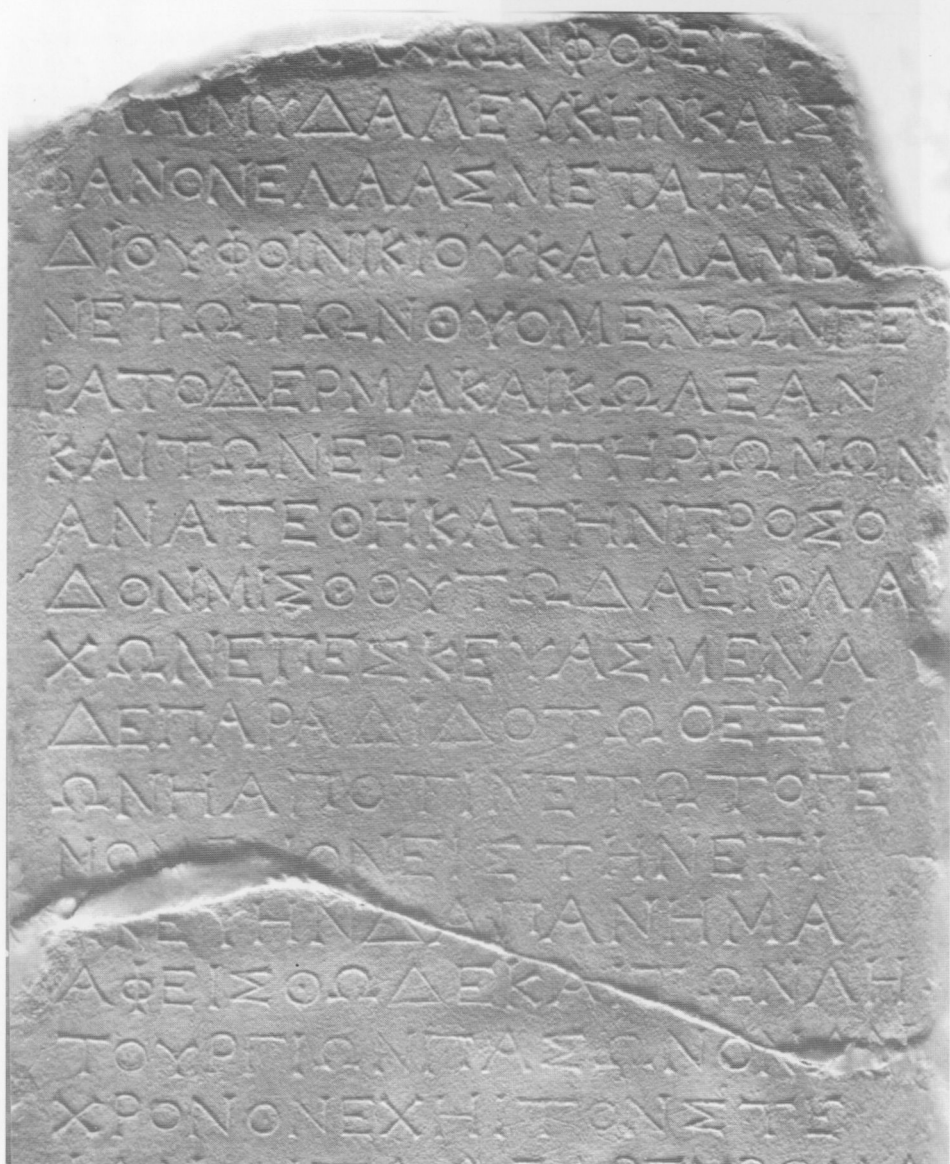 ΛΑΧΩΝΦΟΡΕΙΤ
ΛΑΜΥΔΑΛΕΥΚΗΝΚΑΙΣ
ΦΑΝΟΝΕΛΑΑΣΜΕΤΑΤΑΙΝ
ΔΙΟΥΦΟΙΝΙΚΙΟΥΚΑΙΛΑΜΒ
ΝΕΤΩΤΩΝΘΥΟΜΕΝΩΝΓΕ
ΡΑΤΟΔΕΡΜΑΚΑΙΚΩΛΕΑΝ
ΚΑΙΤΩΝΕΡΓΑΣΤΗΡΙΩΝΩΝ
ΑΝΑΤΕΘΗΚΑΤΗΝΠΡΟΣΟ
ΔΟΝΜΙΣΘΟΥΤΩΔΑΕΙΟΛΑ
ΧΩΝΕΠΕΣΚΕΥΑΣΜΕΝΑ
ΔΕΠΑΡΑΔΙΔΟΤΩΟΕΞΙ
ΩΝΗΑΠΟΤΙΝΕΤΩΤΟΓΕ
ΝΟΜΕΝΟΝΕΙΣΤΗΝΕΠΙ
ΚΕΥΗΝΔΑΠΑΝΗΜΑ
ΑΦΕΙΣΘΩΔΕΚΑΙΤΩΝΛΗ
ΤΟΥΡΓΙΩΝΠΑΣΩΝΟΝΑΝ
ΧΡΟΝΟΝΕΧΗΙΤΟΝΣΤΕ